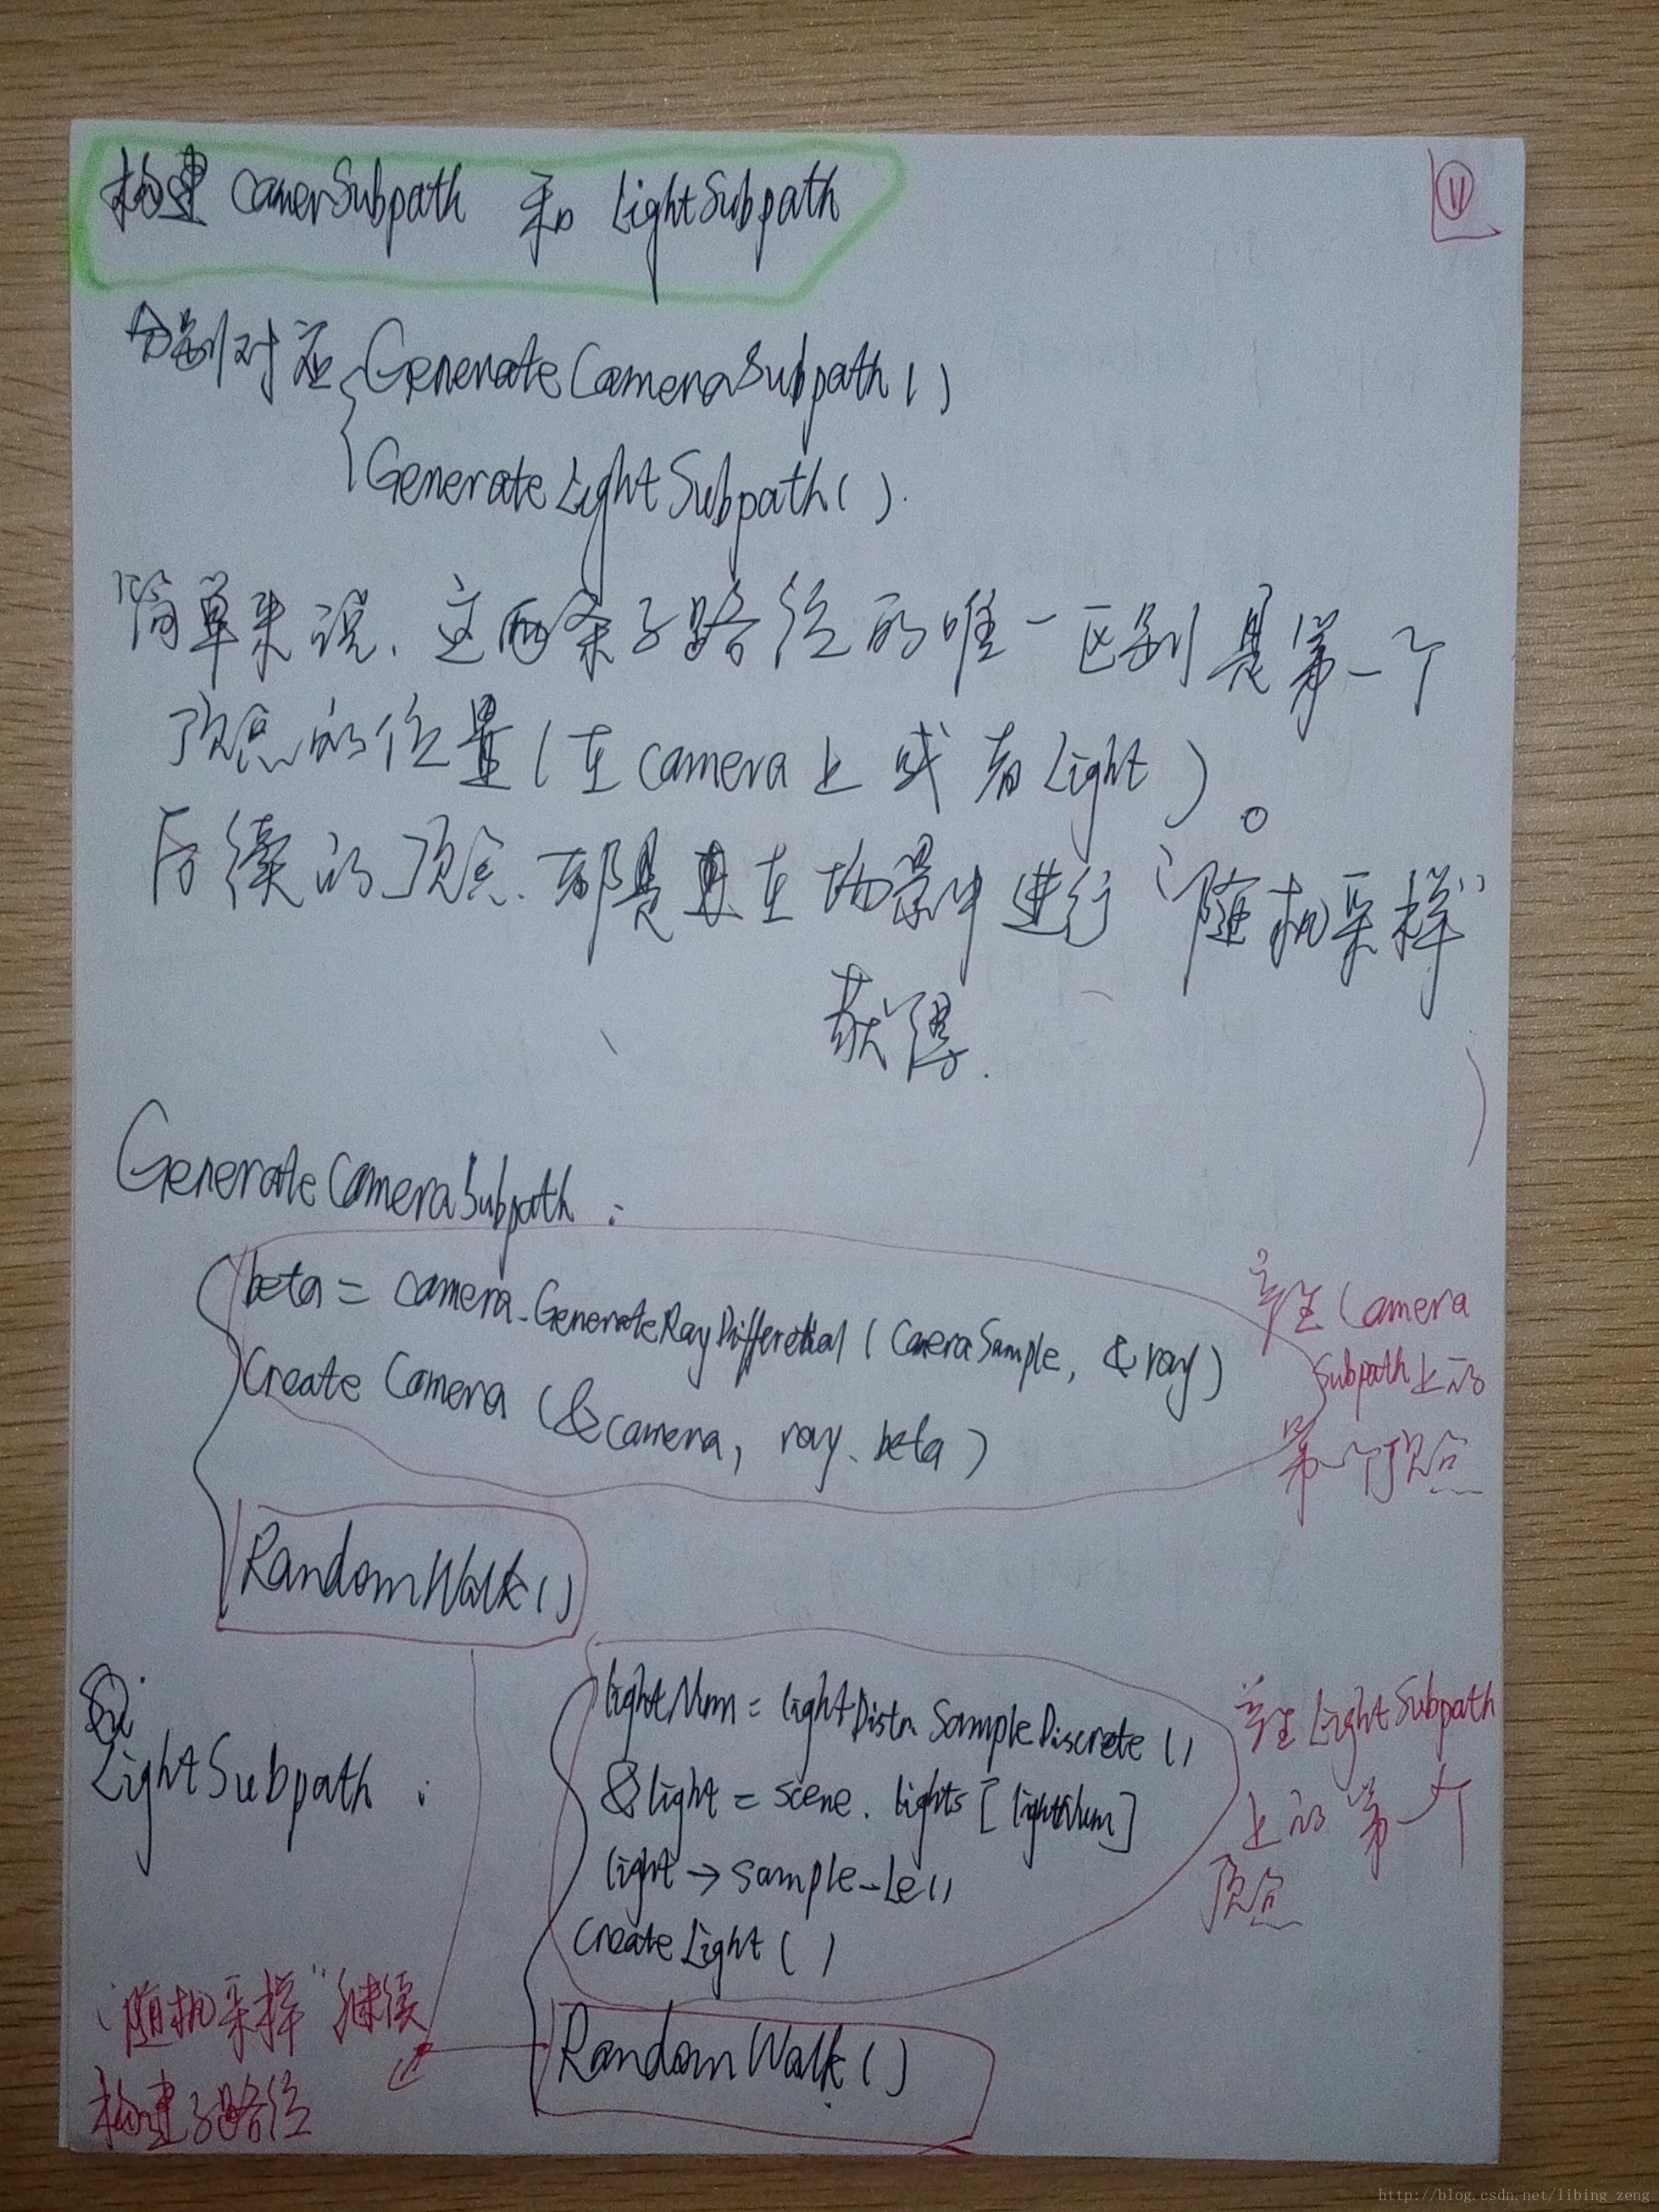 构建 CamerSubpath 和 LightSubpath
11
分别对应 GenerateCameraSubpath()
GenerateLightSubpath().
简单来说，这两条子路径的唯一区别是第一个
顶点的位置(在camera上或者Light)。
后续的顶点，都是在场景中进行“随机采样”
获得.
GenerateCameraSubpath:
beta = camera.GenerateRayDifferetial(CameraSample, &ray)
Create Camera (&camera, ray, beta)
产生Camera
Subpath上的
第一个顶点
RandomWalk()
LightSubpath:
lightNum = lightDistr SampleDiscrete()
&light = scene.lights[lightNum]
light→sample_Le()
Create Light()
产生LightSubpath
上的第一个
顶点
RandomWalk()
“随机采样”继续
构建子路径
http://blog.csdn.net/libing_zeng